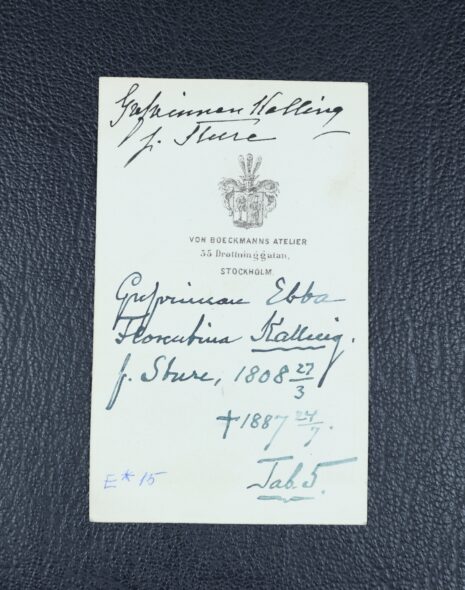 Grefvinnan Kalling
f. Sture
VON BOECKMANNS ATELIER
55 Drottninggatan,
STOCKHOLM
Grefvinnan Ebba
Florentina Kalling.
f. Sture, 1808 27/3
†1887 24/7.
Tab. 5.
E* 15